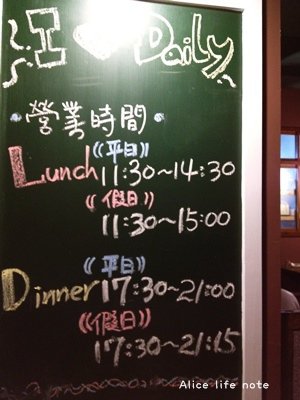 I ♥ Daily
營業時間
((平日))
Lunch 11:30~14:30
((假日))
11:30~15:00
((平日))
Dinner 17:30~21:00
((假日))
17:30~21:15
Alice life note